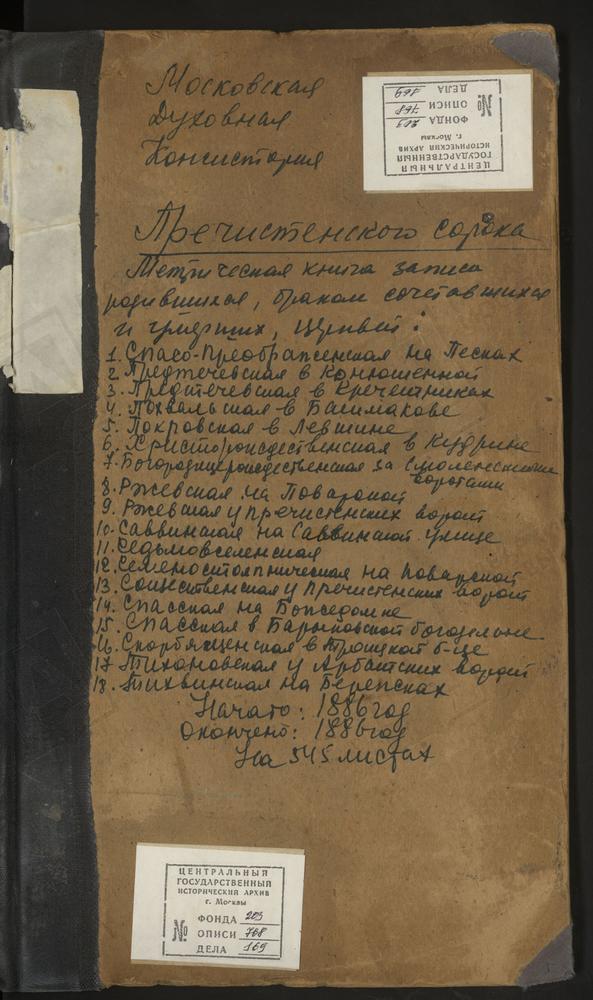 Московская
Духовная
Консистория
ЦЕНТРАЛЬНЫЙ
ГОСУДАРСТВЕННЫЙ
ИСТОРИЧЕСКИЙ АРХИВ
г. Москвы
ФОНДА 203
№ ОПИСИ 768
ДЕЛА 169
Пречистенского сорока
Метрическая книга записи
родившихся, браком сочетавшихся
и умерших, церквей:
1. Спасо-Преображенская на Песках
2. Предтечевская в Конюшенной
3. Предтечевская в Кречетниках
4. Похвальская в Башмакове
5. Покровская в Левшине
6. Христорождественская в Кудрине
7. Богородицерождественская за Смоленскими
воротами
8. Ржевская на Поварской
9. Ржевская у пречистенских ворот
10. Саввинская на Саввинской улице
11. Седьмовселенская
12. Семеностолпническая на Поварской
13. Сошественская у пречистенских ворот
14. Спасская на Божедомке
15. Спасская в Барыковской богодельне
16. Скорбященская в Троицкой б-це
17. Тихоновская у Арбатских ворот
18. Тихвинская на Бережках
Начато: 1886 год
Окончено: 1886 год
На 545 листах
ЦЕНТРАЛЬНЫЙ
ГОСУДАРСТВЕННЫЙ
ИСТОРИЧЕСКИЙ АРХИВ
г. Москвы
ФОНДА 203
№ ОПИСИ 768
ДЕЛА 169